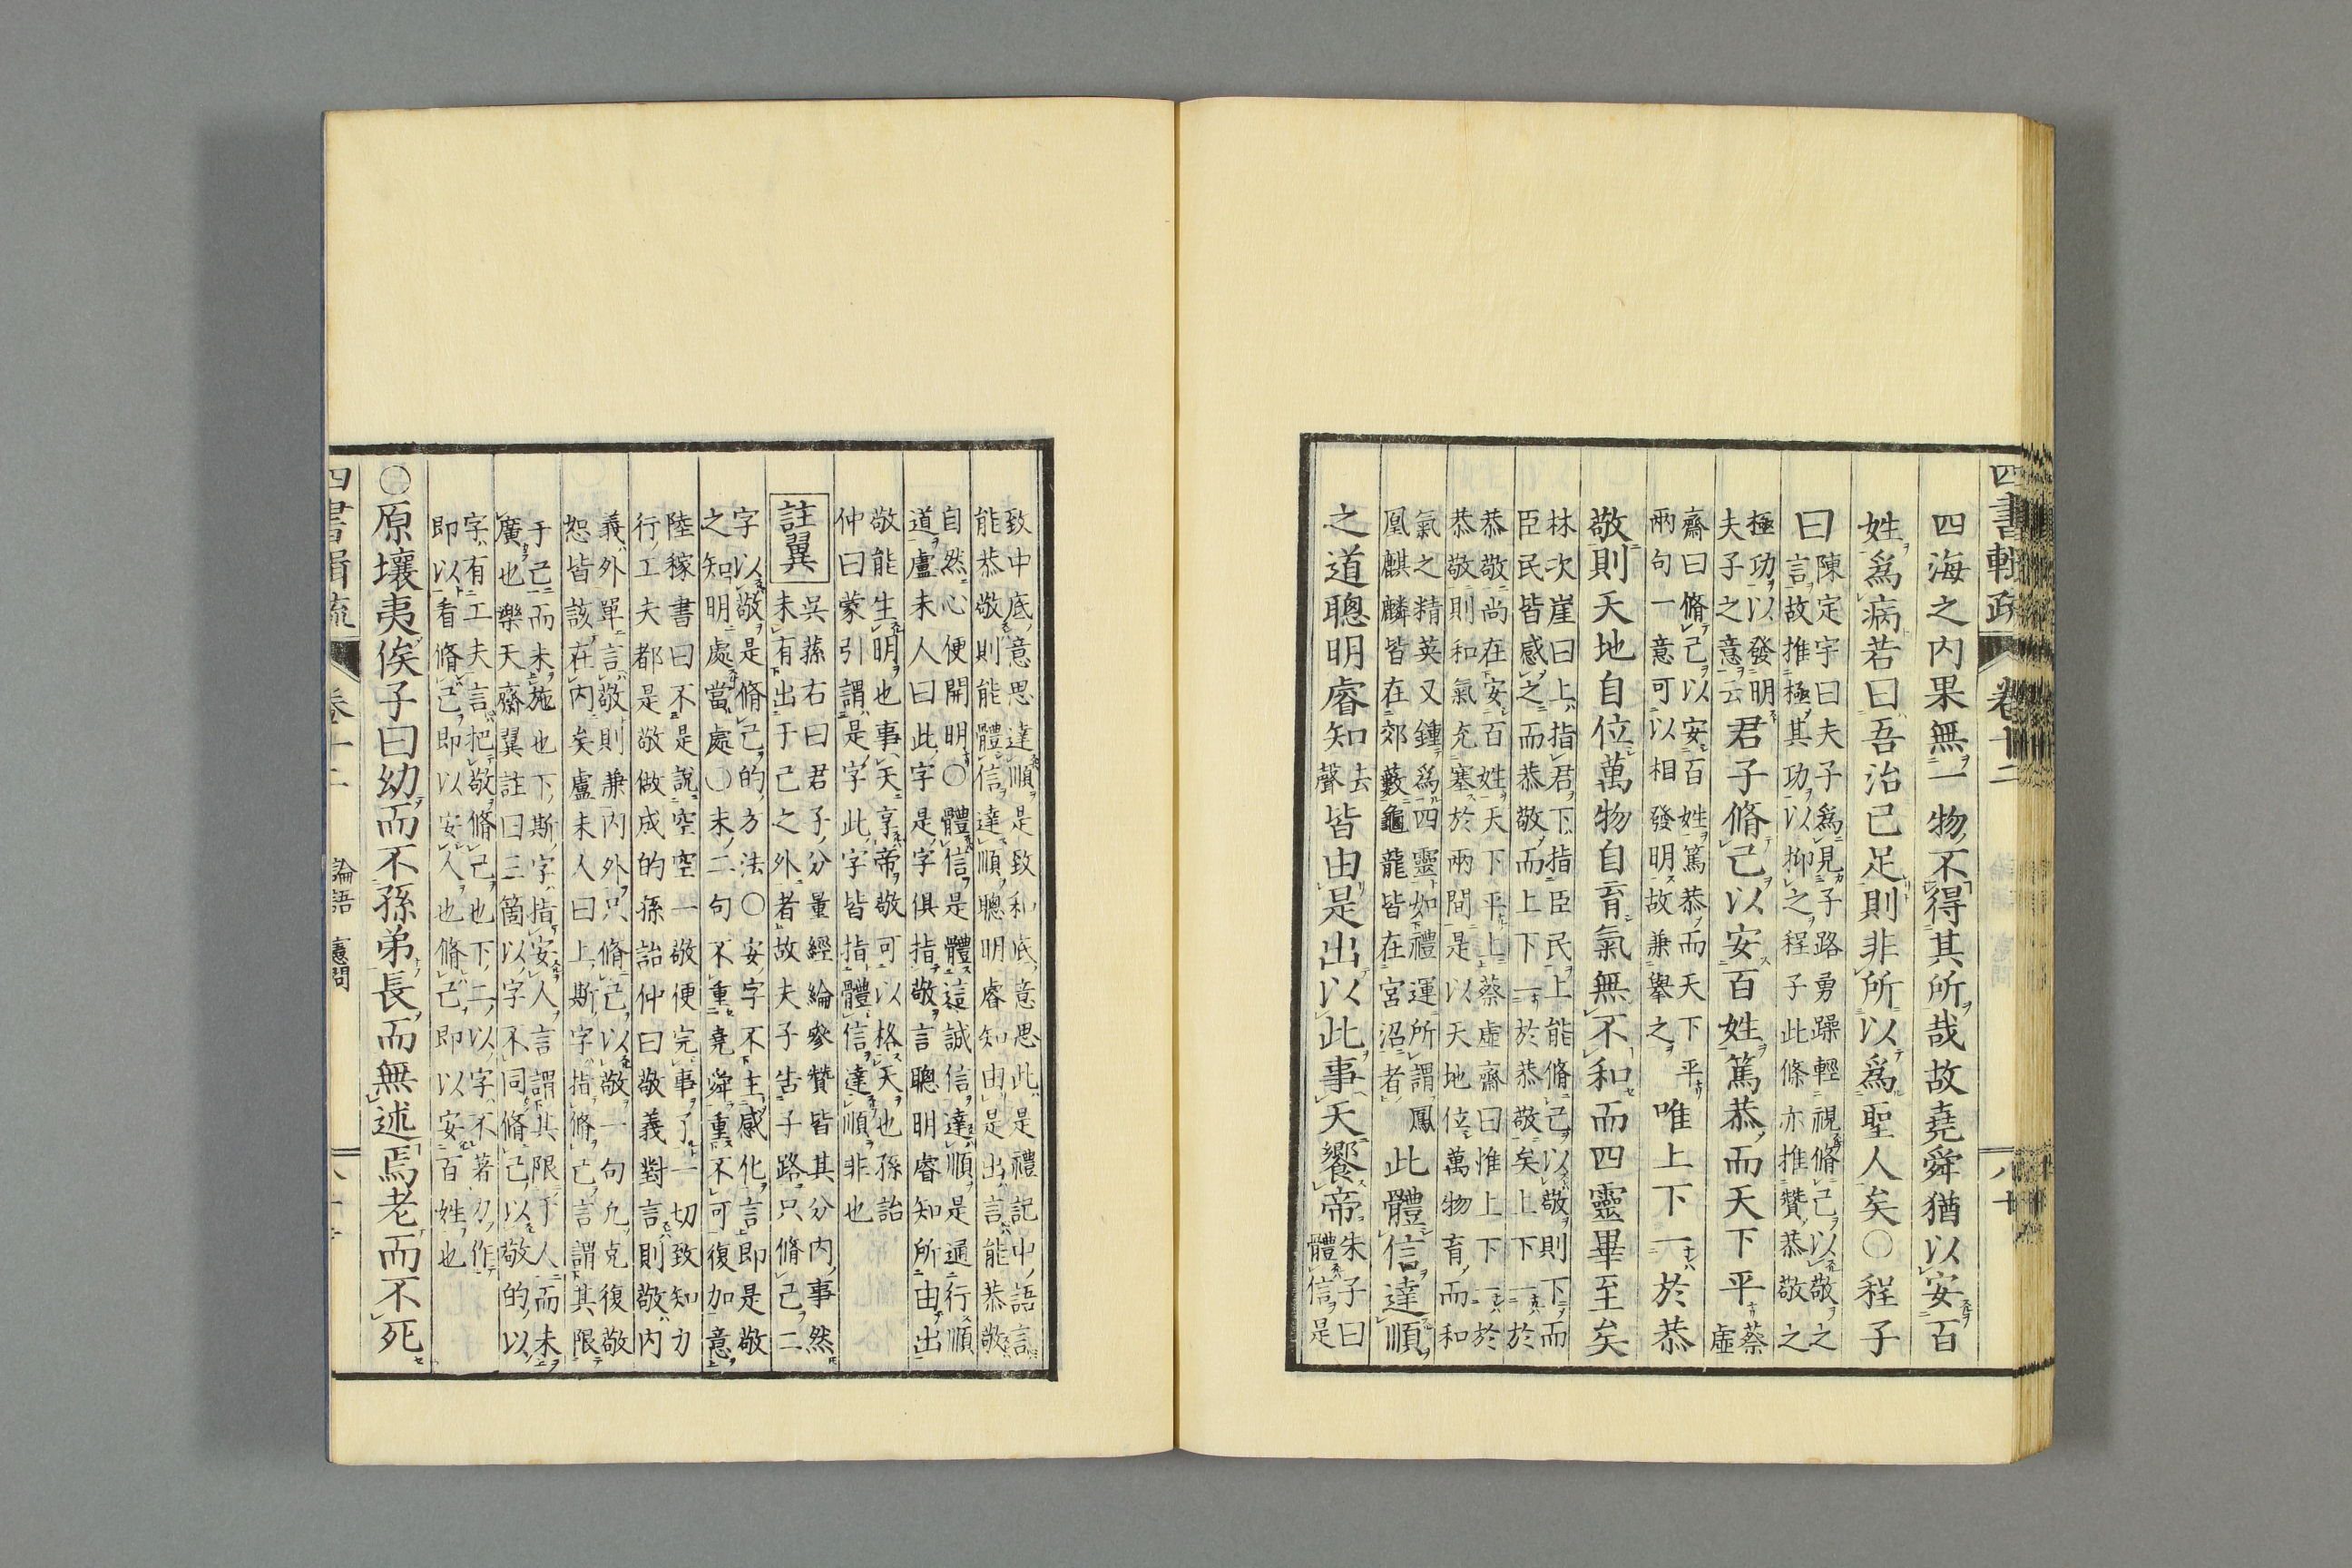 四書輯疏 卷十二 八十
四海之内果無一物不得其所哉故堯舜猶以安百
姓爲病若曰吾治已足則非所以爲聖人矣○程子
曰
陳定宇曰夫子爲見子路勇躁輕視脩己以敬之
言故推極其功以抑之程子此條亦推贊恭敬之
極功以發明
夫子之意云
君子脩己以安百姓篤恭而天下平
蔡虛
齋曰脩己以安百姓篤恭而天下平
兩句一意可以相發明故兼擧之
唯上下一於恭
敬則天地自位萬物自育氣無不和而四靈畢至矣
林次崖曰上指君下指臣民上能脩己以敬則下而
臣民皆感之而恭敬而上下一於恭敬矣上下一於
恭敬尚在安百姓天下平上蔡虛齋曰惟上下一於
恭敬則和氣充塞於兩間是以天地位萬物育而和
氣之精英又鍾爲四靈如禮運所謂鳳
凰麒麟皆在郊藪龜龍皆在宮沼者
此體信達順
之道聰明睿知
去
聲
皆由是出以此事天饗帝
朱子曰
體信是
致中底意思達順是致和底意思此是禮記中語言
能恭敬則能體信達順聰明睿知由是出言能恭敬
自然心便開明○體信是體這誠信達順是通行順
道盧未人曰此字是字俱指敬言聰明睿知所由出
敬能生明也事天享帝敬可以格天也孫詒
仲曰蒙引謂是字此字皆指體信達順非也
註翼
吳蓀右曰君子分量經綸參贊皆其分内事然
未有出于己之外者故夫子告子路只脩己二
字以敬是脩己的方法○安字不主感化言即是敬
之知明處當處○末二句不重堯舜重不可復加意
陸稼書曰不是說空空一敬便完事了一切致知力
行工夫都是敬做成的孫詒仲曰敬義對言則敬内
義外單言敬則兼内外只脩己以敬一句允克復敬
恕皆該在内矣盧未人曰上斯字指脩己言謂其限
于己而未施也下斯字指安人言謂其限于人而未
廣也樂天齋翼註曰三箇以字不同脩己以敬的以
字有工夫言把敬脩己也下二以字不著力作
即以看脩己即以安人也脩己即以安百姓也
○原壤夷俟子曰幼而不孫弟長而無述焉老而不死
四書輯疏 卷十二 論語 憲問